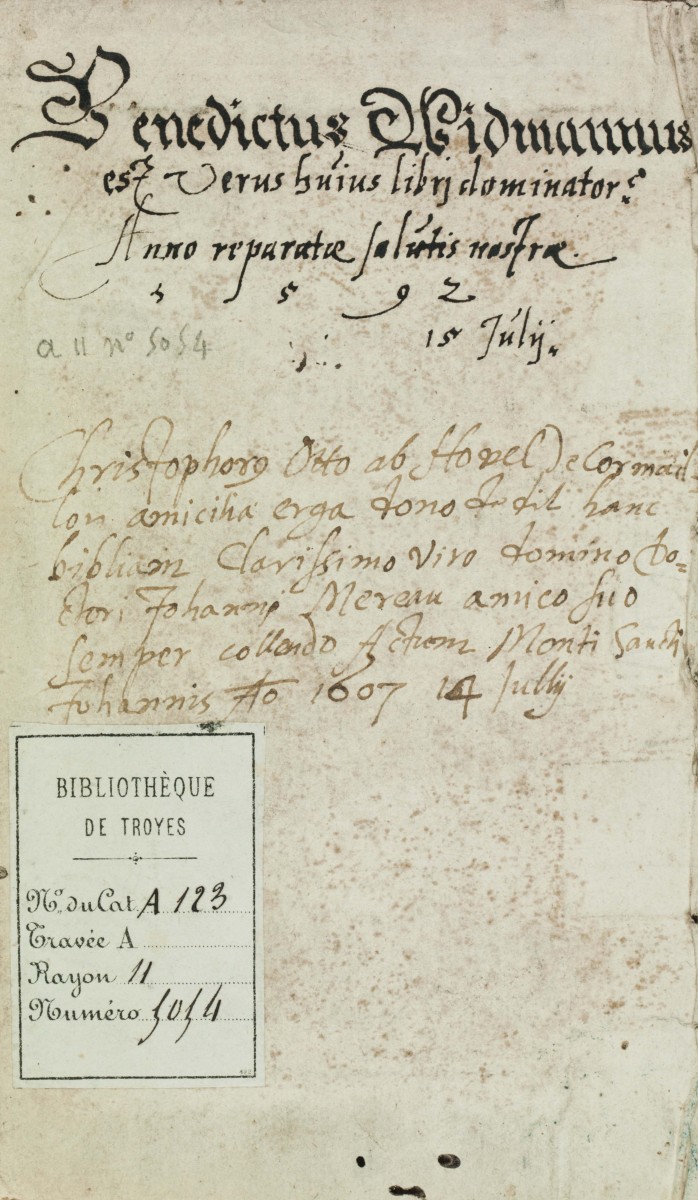 Benedictus Widmannus
est Verus huius librj dominator.
Anno reparatæ salutis nostræ.
1 5 9 2
15 Julij.
a 11 nº 5054
Christophorꝰ Otto ab Hovel De Cormail
lon amicitia erga dono dedit hanc
bibliam Clarissimo Viro domino Do-
ctori Johanni Mereau amico suo
semper collendo Actum Monti Sancti
Johannis Aº 1607 14 Jullij
BIBLIOTHÈQUE
DE TROYES
Nº. du Cat. A 123
Travée A
Rayon 11
Numéro 5054